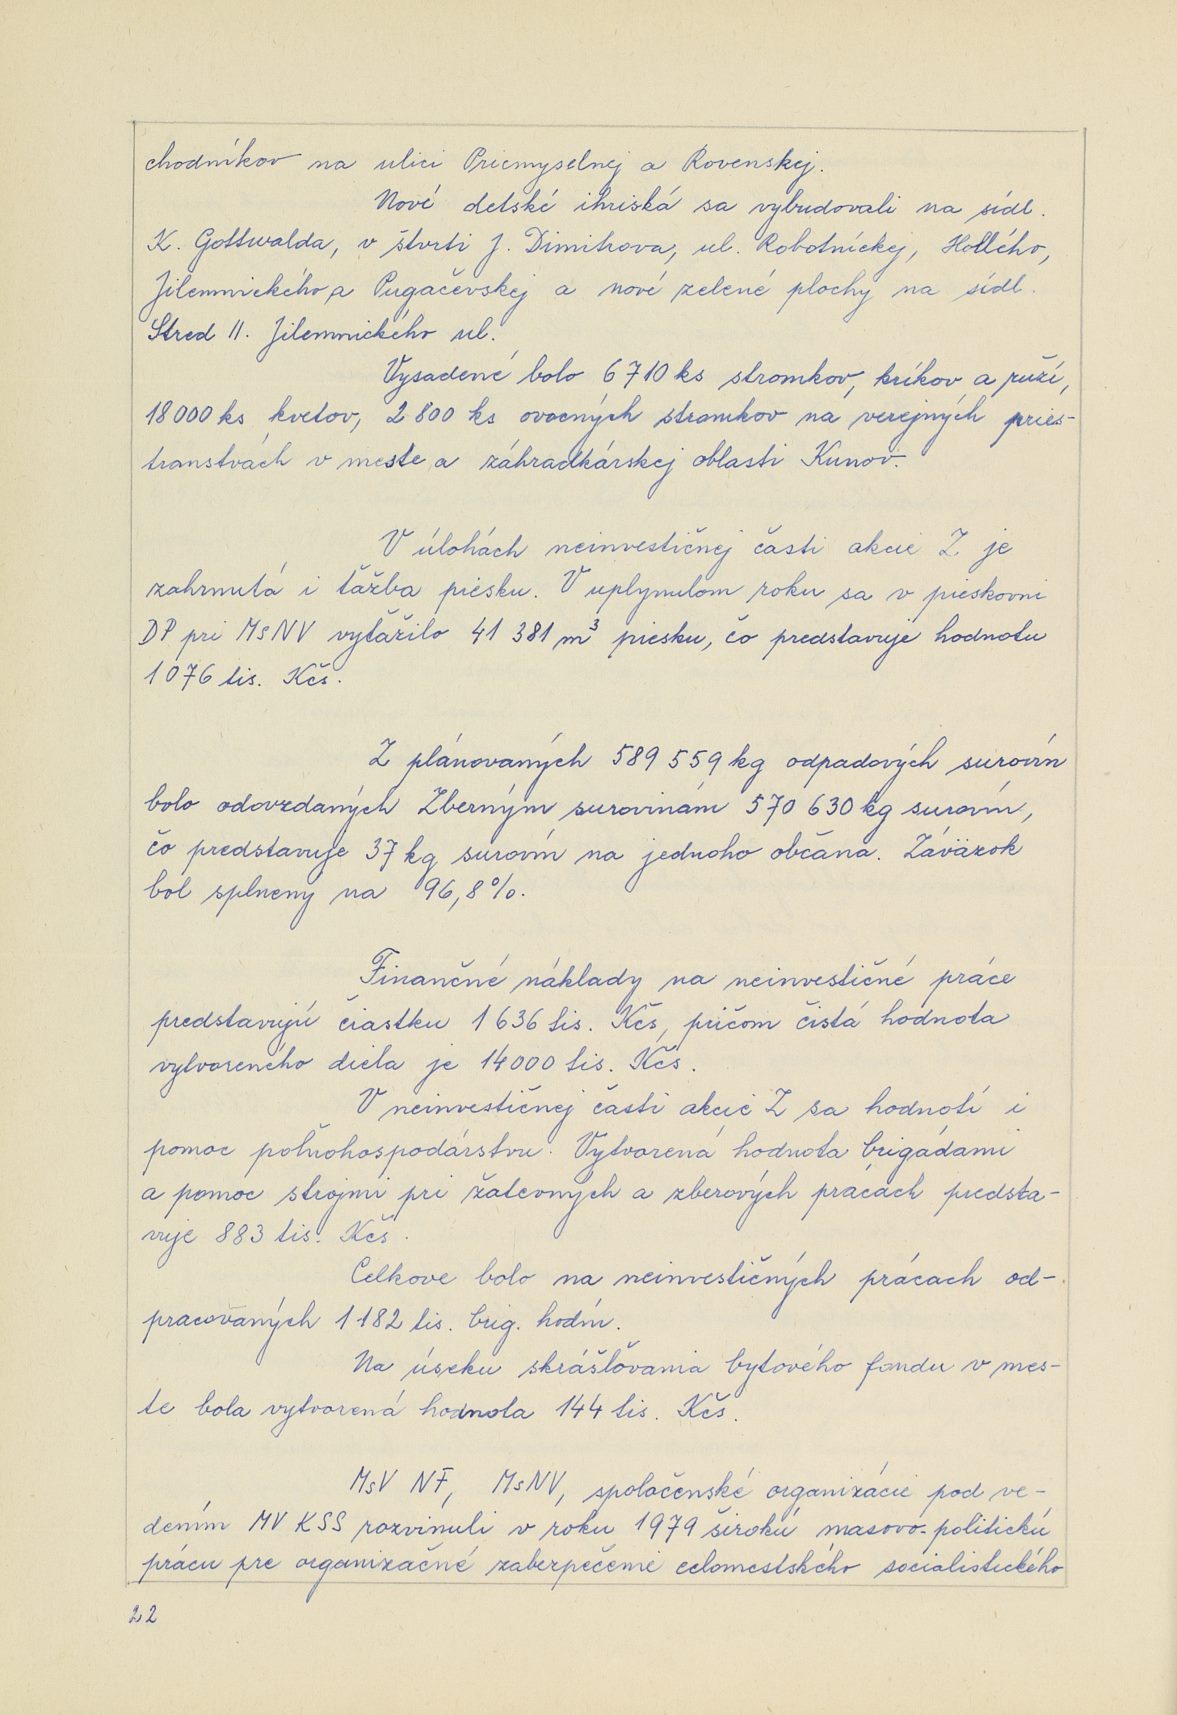 chodníkov na ulici Priemyselnej a Rovenskej.
Nové detské ihriská sa vybudovali na sídl.
K. Gottwalda, v štvrti J. Dimitrova, ul. Robotníckej, Hollého,
Jilemnického a Pugačevskej a nové zelené plochy na sídl.
Stred II. Jilemnického ul.
Vysadené bolo 6 710 ks stromkov, kríkov a ruží,
18 000 ks kvetov, 2 800 ks ovocných stromkov na verejných pries-
transtvách v meste a záhradkárskej oblasti Kunov.
V úlohách neinvestičnej časti akcie Z je
zahrnutá i ťažba piesku. V uplynulom roku sa v pieskovni
DP pri MsNV vyťažilo 41 381 m³ piesku, čo predstavuje hodnotu
1 076 tis. Kčs.
Z plánovaných 589 559 kg odpadových surovín
bolo odovzdaných Zberným surovinám 570 630 kg surovín,
čo predstavuje 37 kg surovín na jednoho občana. Záväzok
bol splnený na 96,8 %.
Finančné náklady na neinvestičné práce
predstavujú čiastku 1 636 tis. Kčs, pričom čistá hodnota
vytvoreného diela je 14 000 tis. Kčs.
V neinvestičnej časti akcie Z sa hodnotí i
pomoc poľnohospodárstvu. Vytvorená hodnota brigádami
a pomoc strojmi pri žatevných a zberových prácach predsta-
vuje 883 tis. Kčs.
Celkove bolo na neinvestičných prácach od-
pracovaných 1 182 tis. brig. hodín.
Na úseku skrášľovania bytového fondu v mes-
te bola vytvorená hodnota 144 tis. Kčs.
MsV NF, MsNV, spoločenské organizácie pod ve-
dením MV KSS rozvinuli v roku 1979 širokú masovo-politickú
prácu pre organizačné zabezpečenie celomestského socialistického
22